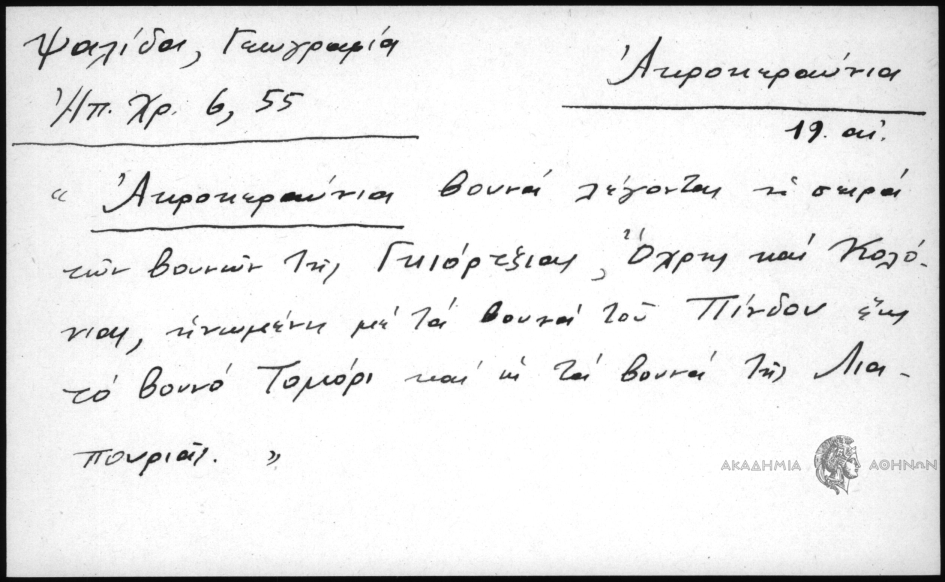 Ψαλίδα, Γεωγραφία
Ἠπ. Χρ. 6, 55
Ἀκροκεραύνια
19. αἰ.
« Ἀκροκεραύνια βουνά λέγονται ἡ σειρά
τῶν βουνῶν τῆς Γκιόρτξιας, Ὄχρης καί Κολό-
νιας, ἡνωμένη μέ τά βουνά τοῦ Πίνδου ἕως
τό βουνό Τομόρι καί τά βουνά τῆς Λια-
πουριᾶς. »
ΑΚΑΔΗΜΙΑ ΑΘΗΝΩΝ